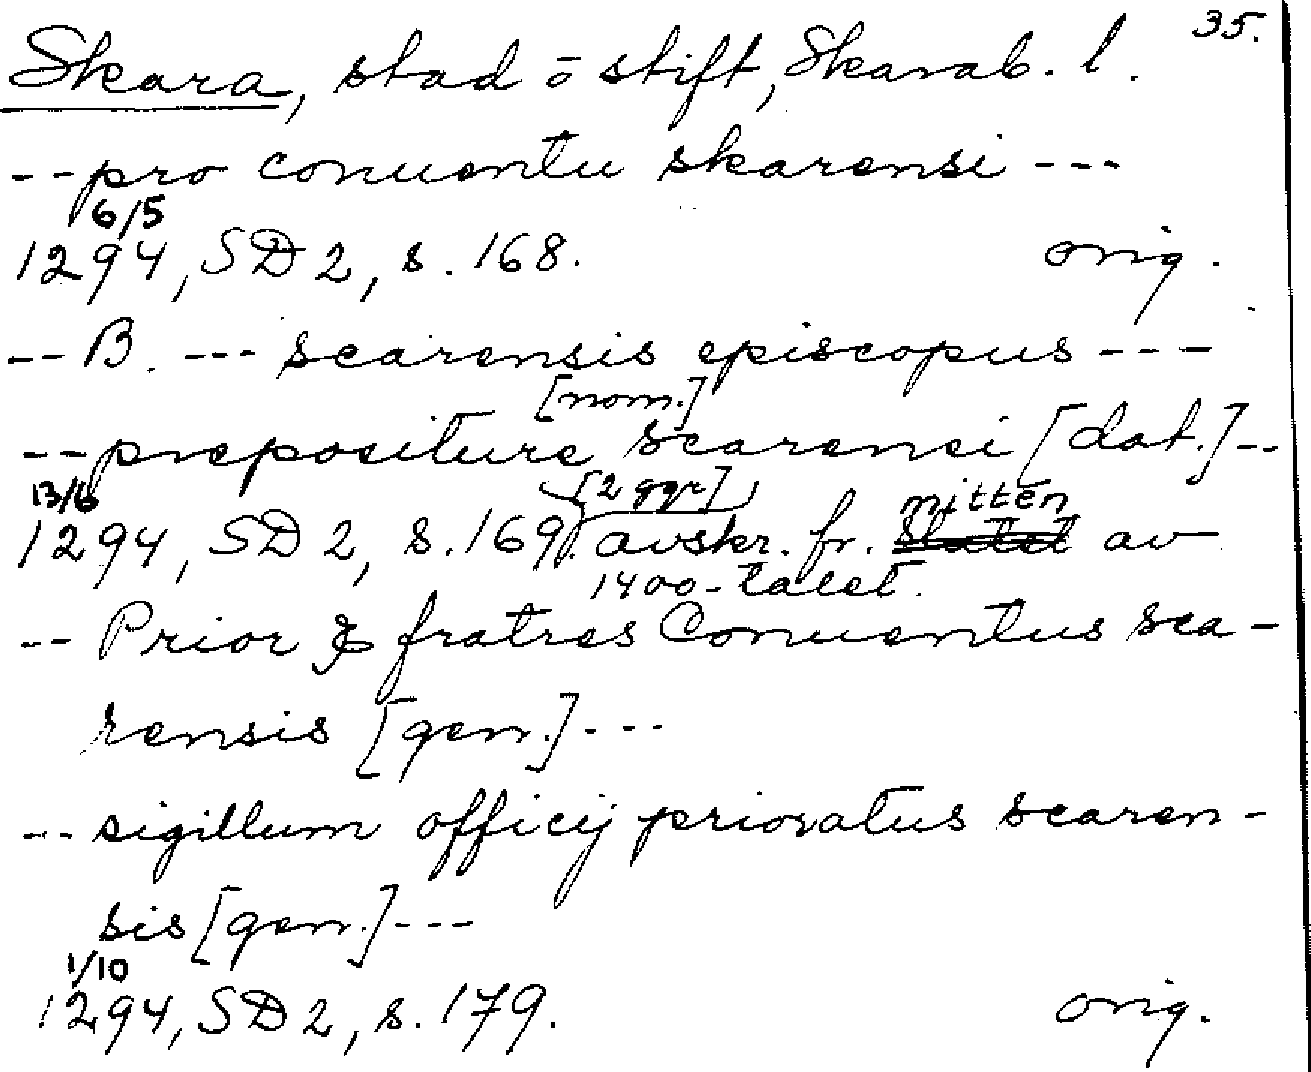 35.
Skara, stad o stift, Skarab. l.
-- pro conuentu skarensi ---
6/5
1294, SD 2, s. 168. orig.
-- B. --- scarensis episcopus ---
[nom.]
-- prepositure scarensi [dat.] --
13/6 [2 ggr] mitten
1294, SD 2, s. 169. avskr. fr. slutet av
1400-talet.
-- Prior & fratres Conuentus sca-
rensis [gen.] ---
-- sigillum officij prioratus scaren-
sis [gen.] ---
1/10
1294, SD 2, s. 179. orig.